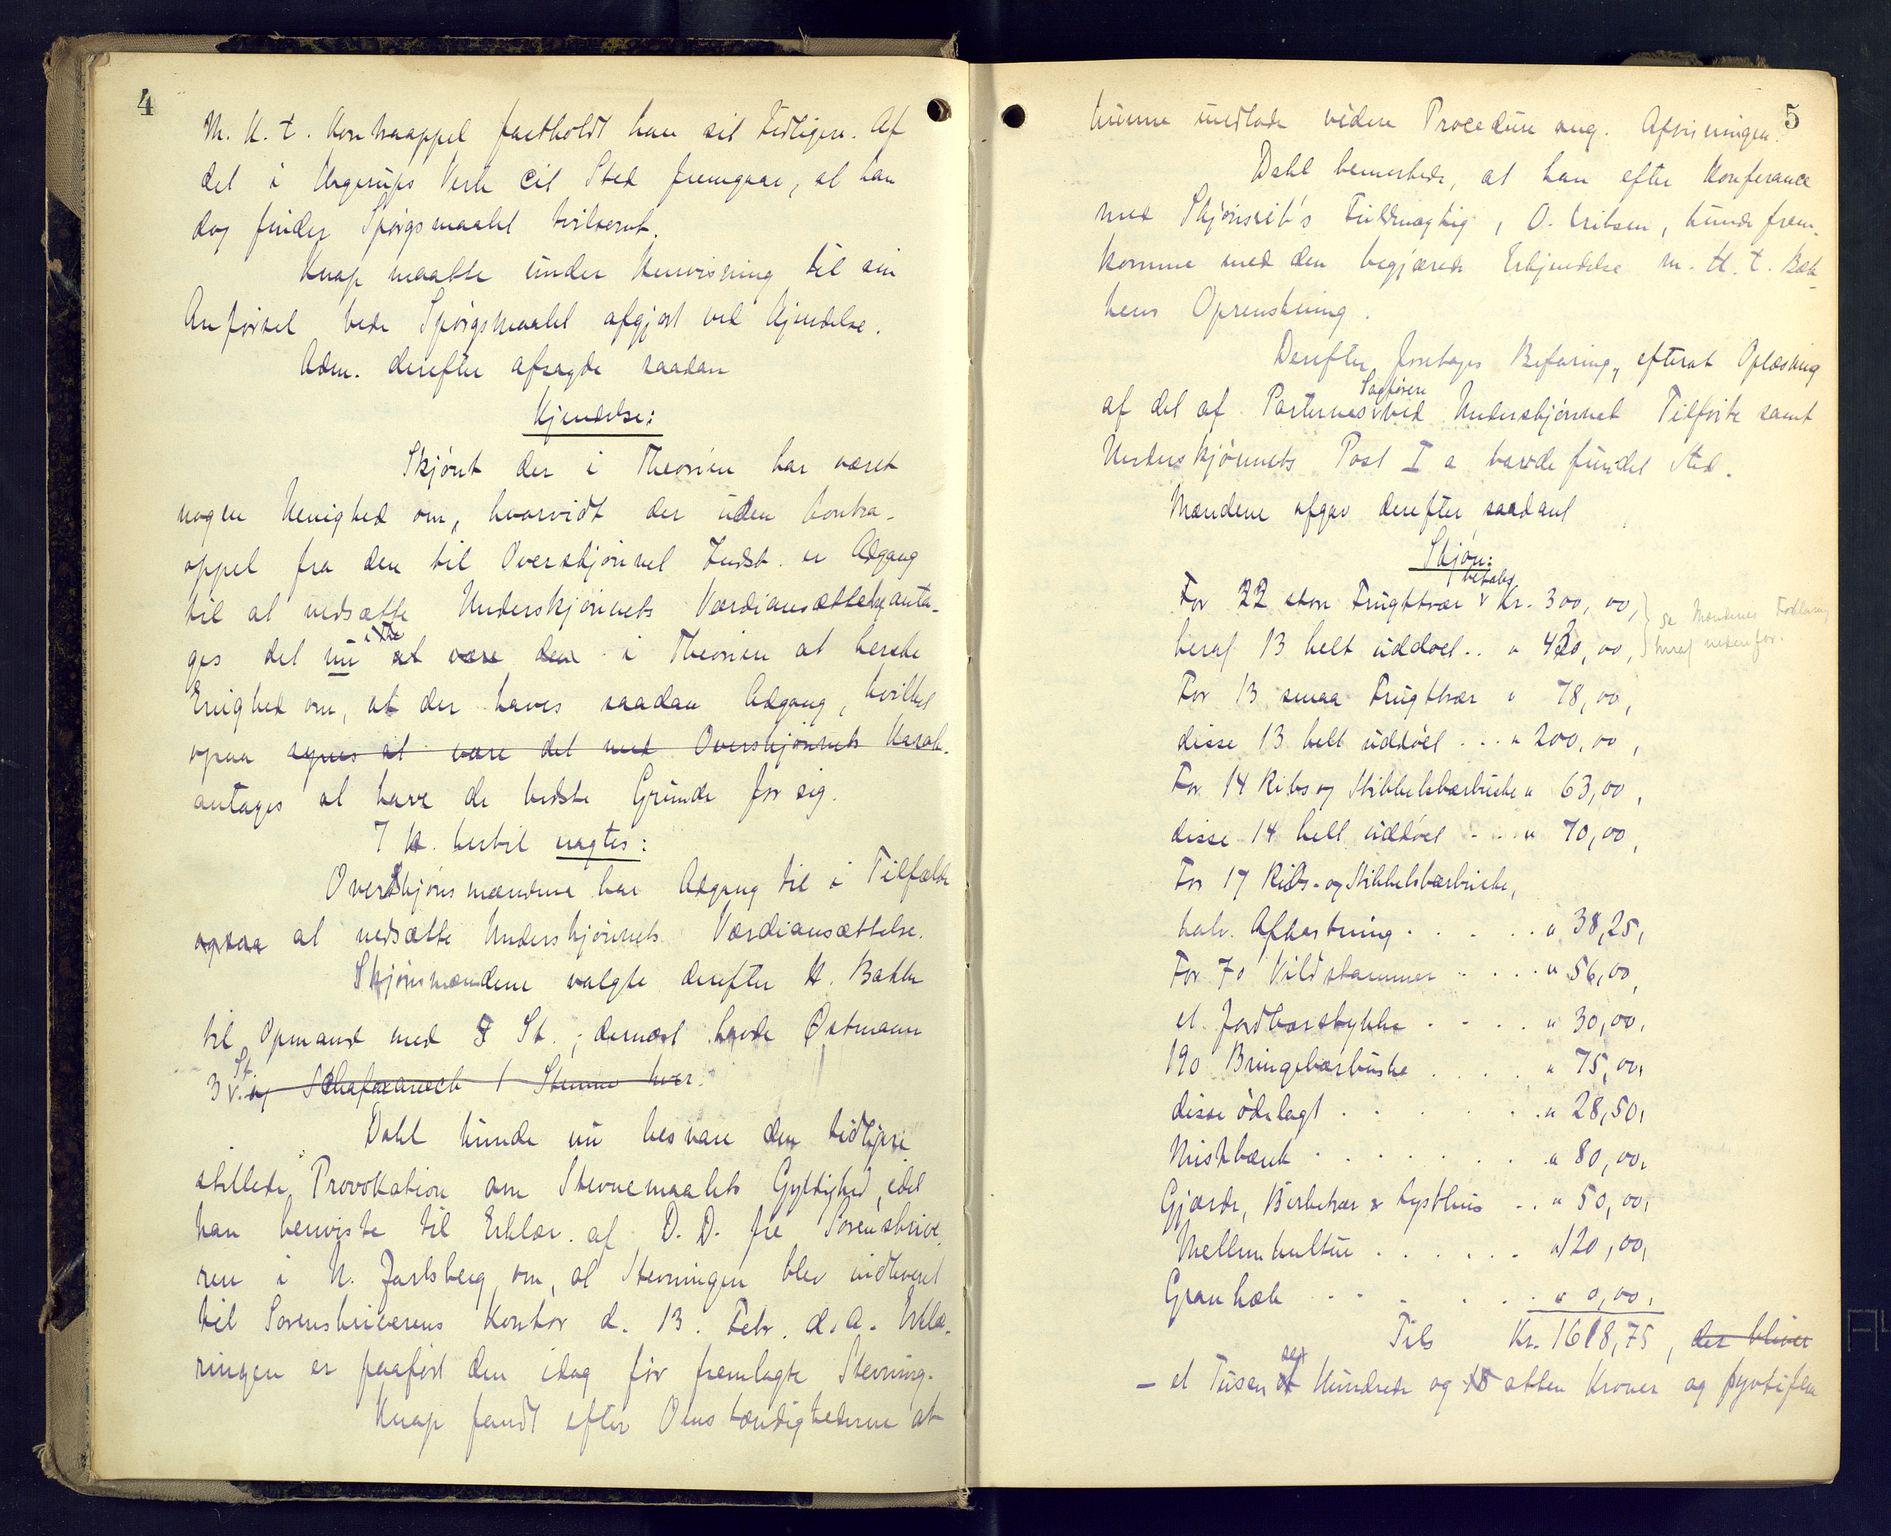 4
M. H. t. Kontraappel fastholdt han sit Tidligere. Af
det i Hagerups Verk cit Sted fremgaar, at han
dog finder Spørgsmaalet tvilsomt.
Knap maatte under Henvisning til sin
Anførsel bede Spørgsmaalet afgjort ved Kjendelse.
Adm. derefter afsagde saadan
Kjendelse:
Skjønt der i Theorien har været
nogen Uenighed om, hvorvidt der uden Kontra-
appel fra den til Overskjønnet Indst. er Adgang
til at nedsætte Underskjønnets Værdiansættelse, anta-
ges det nu at være den i Theorien at herske
Enighed om, at der haves saadan Adgang, hvilket
ogsaa synes at være det med Overskjønnets Karak-
antages at have de bedste Grunde for sig.
I H. hertil vagtes:
Overskjønsmændene har Adgang til i Tilfælde
ogsaa at nedsætte Underskjønnets Værdiansættelse.
Skjønsmændene valgte derefter H. Bakke
til Opmand med 5 St.; dernæst havde Østmann
3 St. og 1 Stemme hver.
Dahl kunde nu besvare den tidligere
stillede Provokation om Stevnemaalets Gyldighed, idet
han henviste til Erklær. af D. D. fra Sorenskrive
ren i N. Jarlsberg om, at Stevningen blev indleveret
til Sorenskriverens Kontor d. 13. Febr. d. A. Erklæ-
ringen er paaført den idag før fremlagte Stevning.
Knap fandt efter Omstændighederne at
5
kunne undlade videre Procedure ang. Afvisningen.
Dahl bemerkede, at han efter Konferance
med Fuldmægtig, O. Eriksen, kunde frem-
komme med den begjærede Erkjendelse m. H. t. Bæk-
kens Oprenskning.
Derefter foretoges Befaring, efterat Oplæsning
af det af Parternes Sagførere ved Underskjønnet Tilførte samt
Underskjønnets Post I a havde fundet Sted.
Mændene afgav derefter saadant
Skjøn:
For 22 store Frugttrær betales Kr. 300,00,
heraf 13 helt uddøet .. " 420,00,
se Mændenes Forklaring
heraf nedenfor.
For 13 smaa Frugttrær " 78,00,
disse 13 helt uddøet ... " 200,00,
For 14 Ribs og Stikkelsbærbuske " 63,00,
disse 14 helt uddøet ... " 70,00,
For 17 Ribs- og Stikkelsbærbuske,
halv. Afkastning ..... " 38,25,
For 70 Vildstammer .... " 56,00,
et Jordbærstykke .... " 30,00,
190 Bringebærbuske .... " 75,00,
disse ødelagt ...... " 28,50,
Mistbænk ....... " 80,00,
Gjærde, Birketrær & Lysthus .. " 50,00,
Mellemkultur ...... " 120,00,
Granhæk ...... " 0,00,
Tils Kr. 1618,75, der bliver
- et Tusen sex Hundrede og atten Kroner og syvtifem